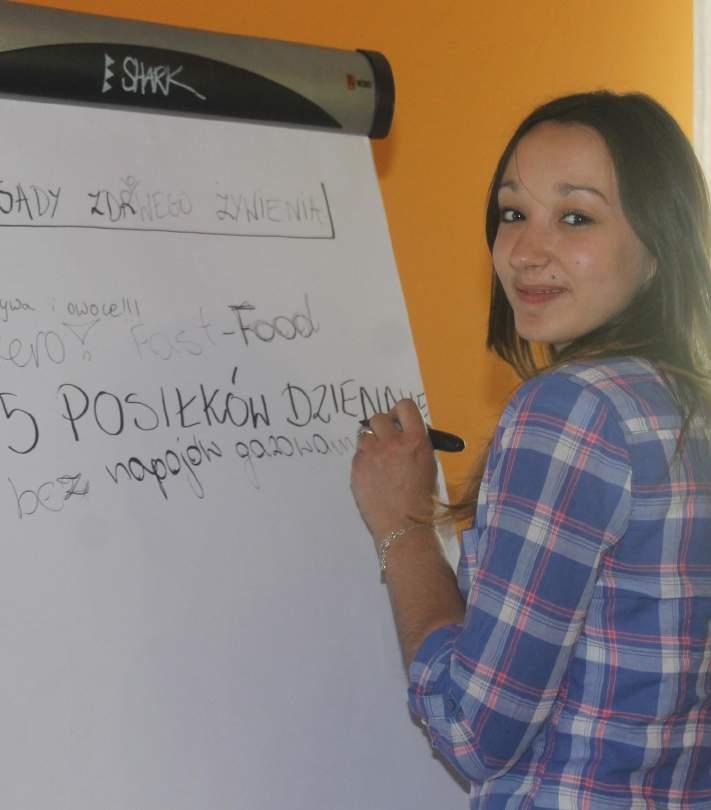 SHARK
SADY ZDROWEGO ŻYWIENIA
ywa i owoce!!!
zero! Fast-Food
5 POSIŁKÓW DZIENNIE
bez napojów gazowan